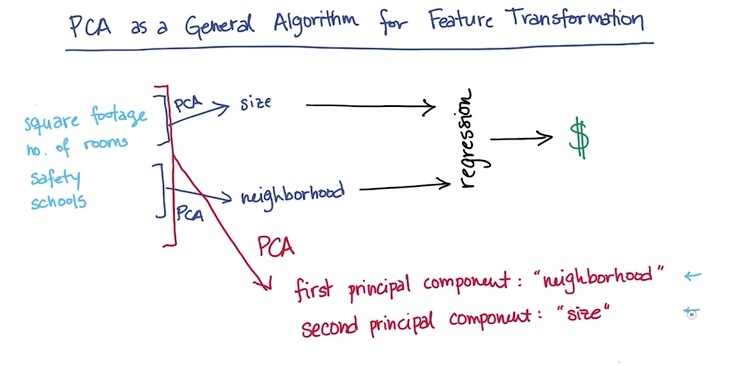 PCA as a General Algorithm for Feature Transformation
square footage
no. of rooms
safety
schools
PCA
size
PCA
neighborhood
regression
$
PCA
first principal component: "neighborhood"
second principal component: "size"